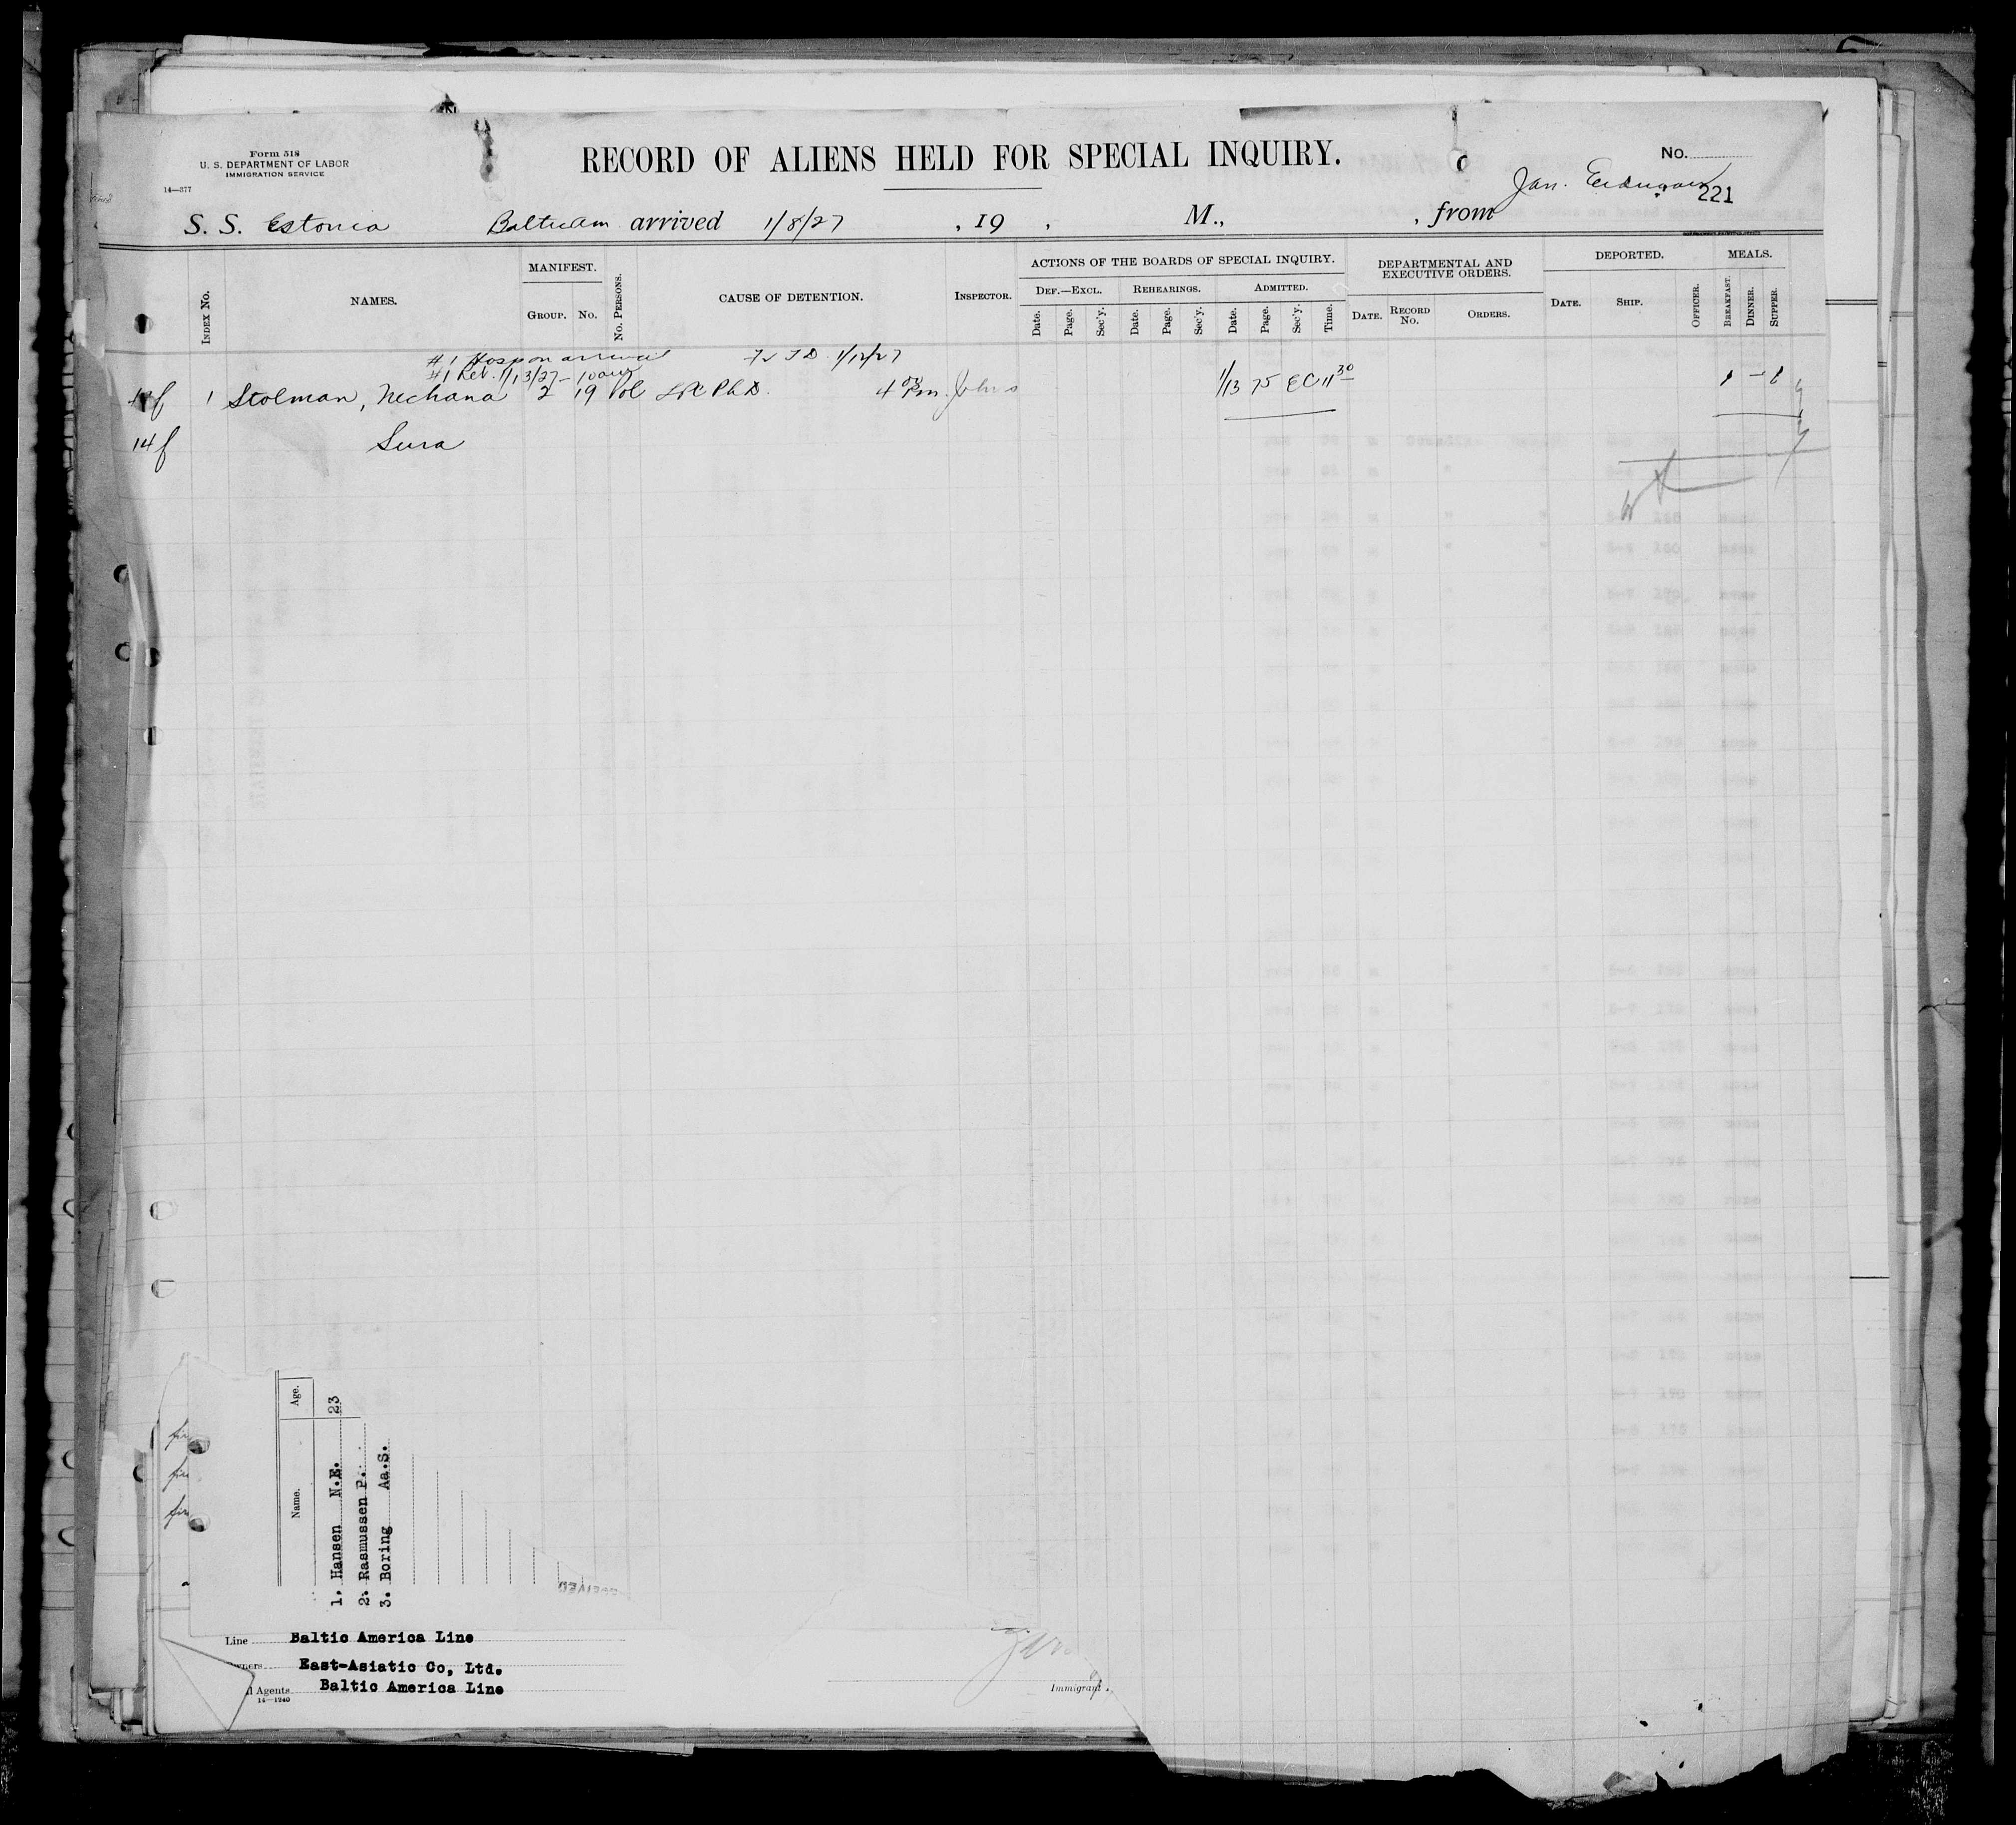 Form 518
U. S. DEPARTMENT OF LABOR
IMMIGRATION SERVICE
14—377
RECORD OF ALIENS HELD FOR SPECIAL INQUIRY.
No.
Jan.
221
S. S. Estonia arrived 1/8/27 , 19 , M., , from
INDEX No.
NAMES.
MANIFEST.
GROUP. No.
No. PERSONS.
CAUSE OF DETENTION.
INSPECTOR.
ACTIONS OF THE BOARDS OF SPECIAL INQUIRY.
DEF.—EXCL. REHEARINGS. ADMITTED.
Date. Page. Sec'y. Date. Page. Sec'y. Date. Page. Sec'y. Time.
DEPARTMENTAL AND EXECUTIVE ORDERS.
DATE. RECORD No. ORDERS.
DEPORTED.
DATE. SHIP. OFFICER.
MEALS.
BREAKFAST. DINNER. SUPPER.
#1 Hosp on arrival 1/12/27
#1 Rel. 1/13/27 - 10 am
1 Stolman, Nechana 2 19 Pol LPC Ph.D. 4 00 Pm. Johns 1/13 75 EC 11 30 1 - 1
14 f Sura
Name. Age.
1. Hansen N.E. 23
2. Rasmussen P.
3. Boring Aa.S.
Line Baltic America Line
East-Asiatic Co, Ltd.
Agents Baltic America Line
14—1240
Immigrant